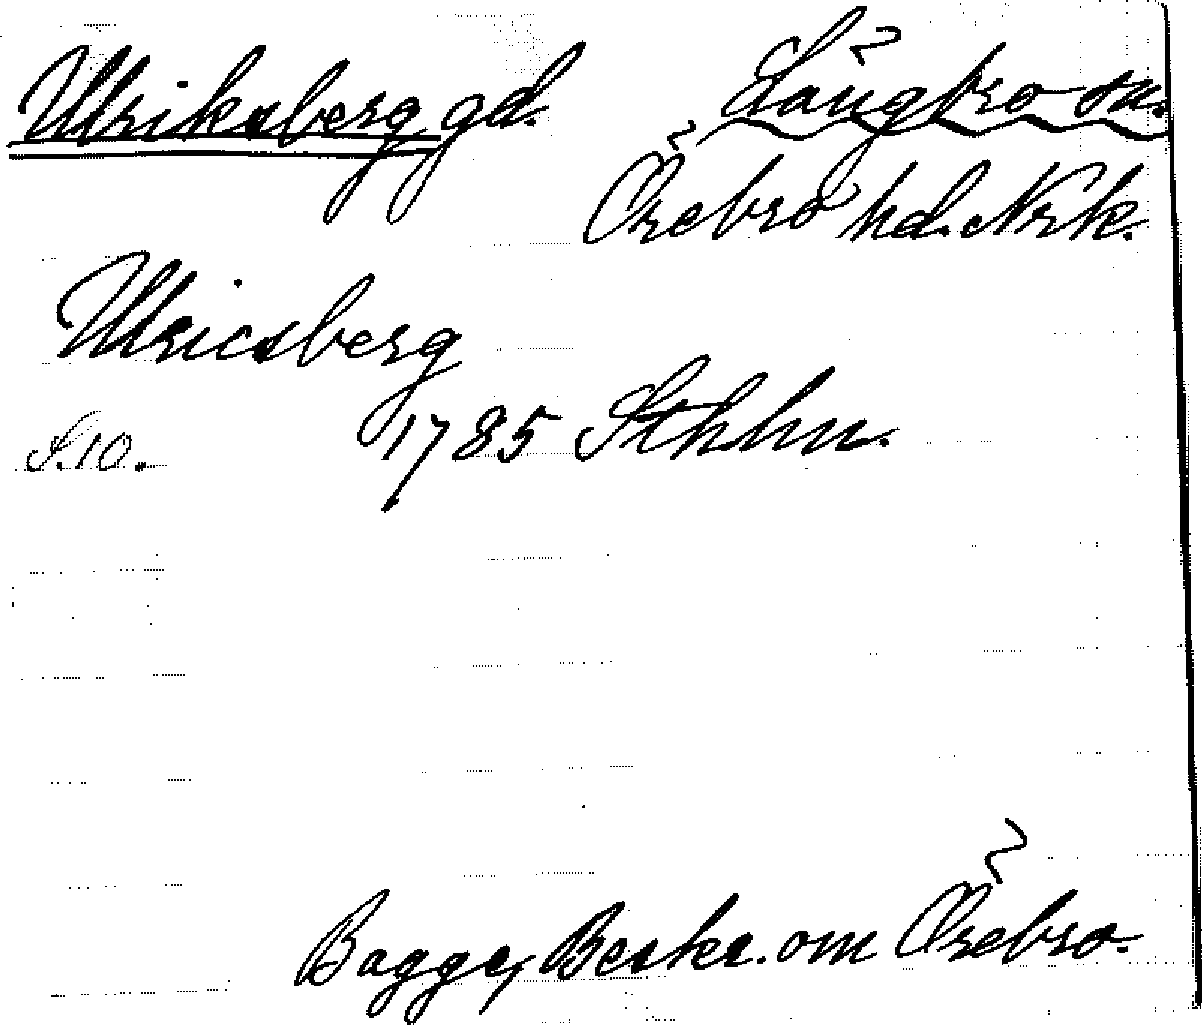 Ulriksberg gd. Långbro sn.
Örebro hd. Nrk.
Ulricsberg
S. 10. 1785 Sthlm.
Bagge, Beskr. om Örebro.